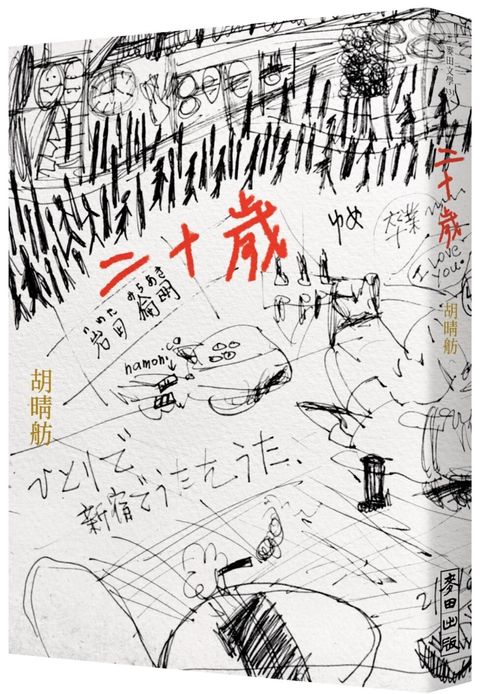 二十歲
ゆめ
卒業
I Love
You
いわた みちあき
岩田 倫明
胡晴舫
ひとりで
新宿でうたをうた、
麥田文學
二十歲
胡晴舫
麥田出版